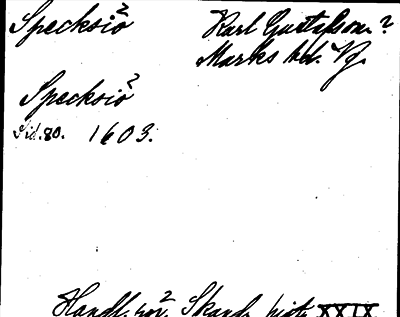 Specksiö
Karl Gustafsson?
Marks hd. Vg.
Specksiö
Sid. 80. 1603.
Handl. rör. Skand. hist. XXIX